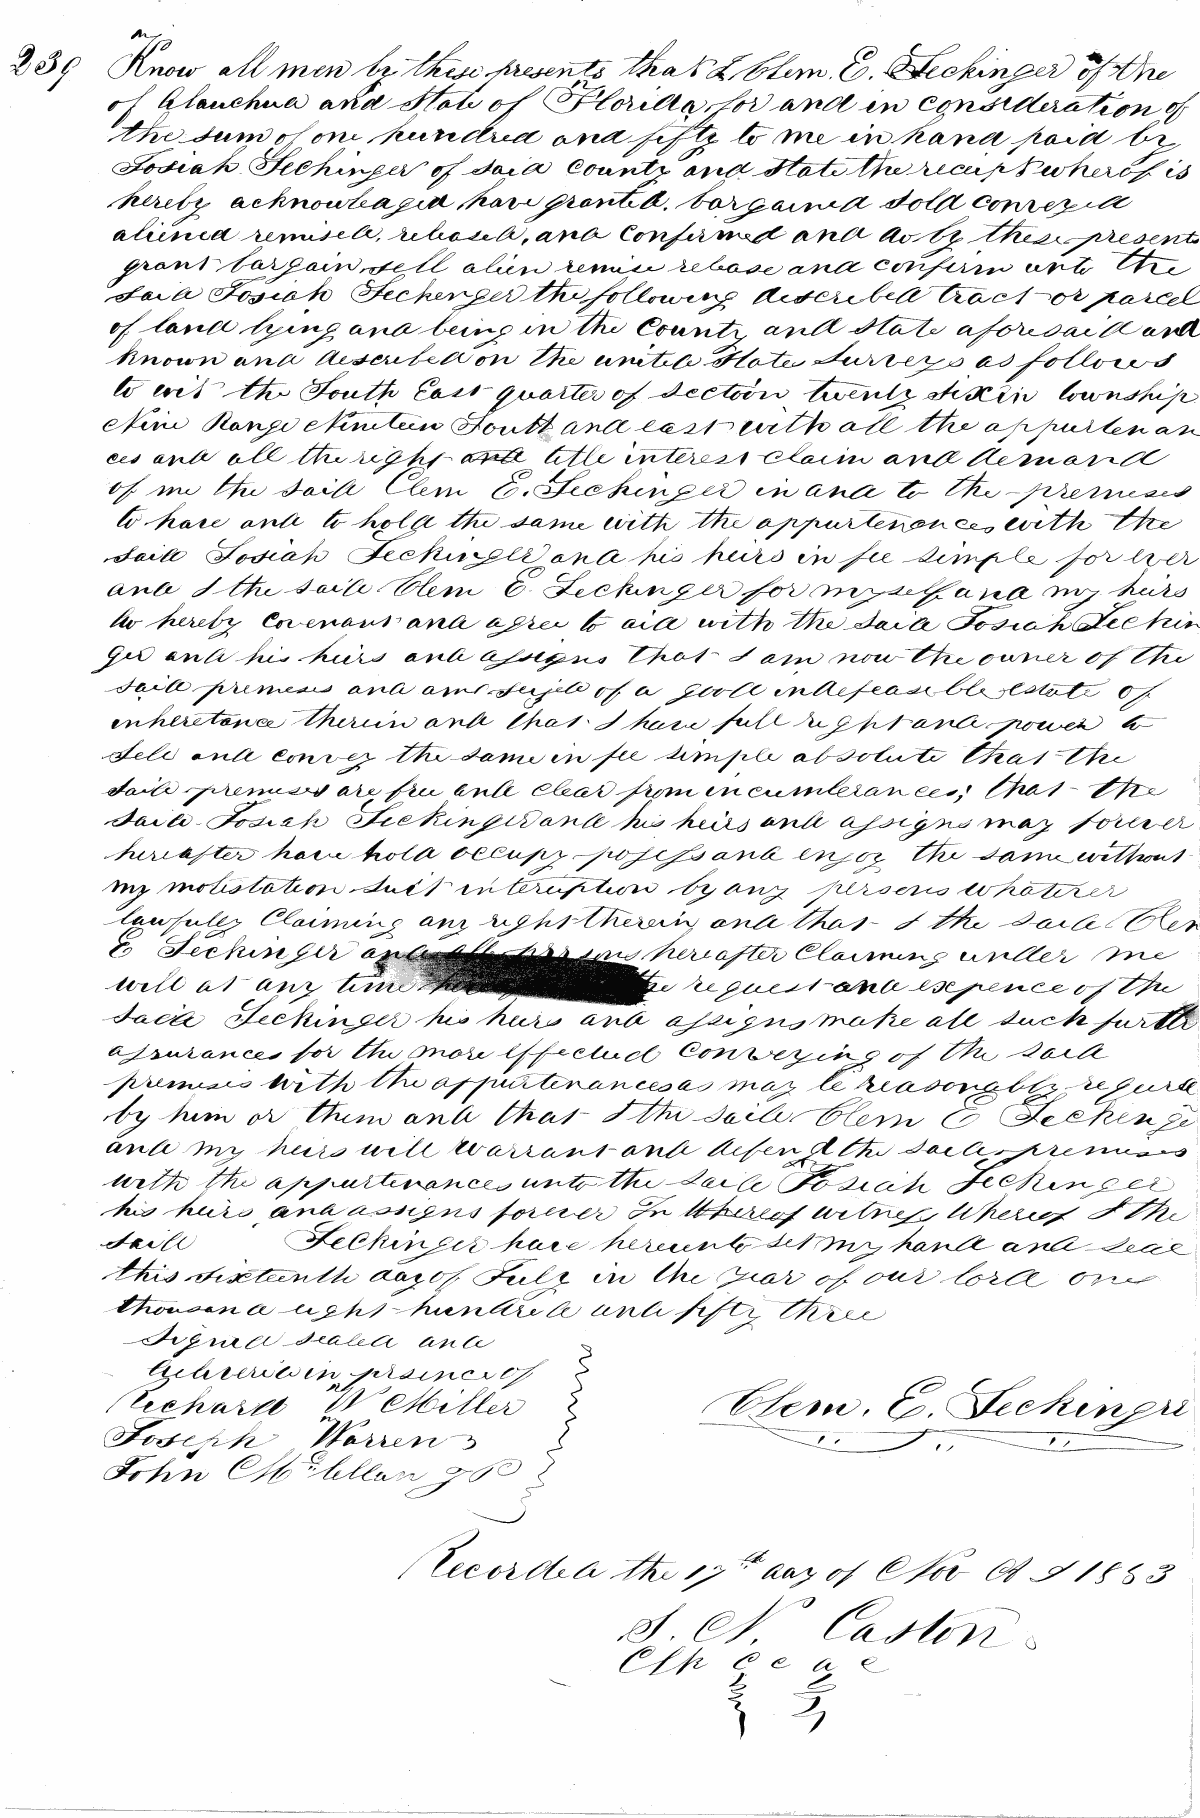 239 Know all men by these presents that I Clem. E. Seckinger of the
of Alauchua and State of Florida for and in consideration of
the sum of one hundred and fifty to me in hand paid by
Josiah Seckinger of said county and state the receipt wherof is
hereby acknowledged have granted. bargained sold conveyed
aliened remised, released, and confirmed and do by these presents
grant bargain sell alien remise release and confirm unto the
said Josiah Seckenger the following described tract or parcel
of land lying and being in the County and state aforesaid and
known and described on the united States surveys as follows
to wit the South East quarter of section twenty six in township
Nine Range Nineteen South and east with all the appurtenan
ces and all the right and title interest claim and demand
of me the said Clem E. Seckinger in and to the premeses
to have and to hold the same with the appurtenances with the
said Josiah Seckinger and his heirs in fee simple for ever
and I the said Clem E. Seckinger for myself and my heirs
do hereby Covenant and agree to aid with the said Josiah Seckin
ger and his heirs and assigns that I am now the owner of the
said premeses and am seized of a good indefeasible estate of
inheretance therein and that I have full right and power to
sell and convey the same in fee simple absolute that the
said premeses are free and clear from incumberances; that the
said Josiah Seckinger and his heirs and assigns may forever
hereafter have hold occupy possess and enjoy the same without
my molestation suit interuption by any persons whatever
lawfully Claiming any right therein and that I the said Clem
E Seckinger and all persons hereafter Claiming under me
will at any time the request and expence of the
said Seckinger his heirs and assigns make all such further
assurances for the more effectual conveying of the said
premesis with the appurtenances as may be reasonably requird
by him or them and that I the said Clem E Seckenge
and my heirs will warrant and defend the said premeses
with the appurtenances unto the said Josiah Seckinger
his heirs and assigns forever In Whereof witness Whereof I the
said Seckinger have hereunto set my hand and seal
this sixteenth day of July in the year of our lord one
thousand eight hundred and fifty three
Signed sealed and
delivered in prsence of
Richard W Miller
Clem. E. Seckinger
Joseph Warren
John McClellan JP
Recorded the 17th day of Nov A D 1853
S. N. Caston
Clk C C A C